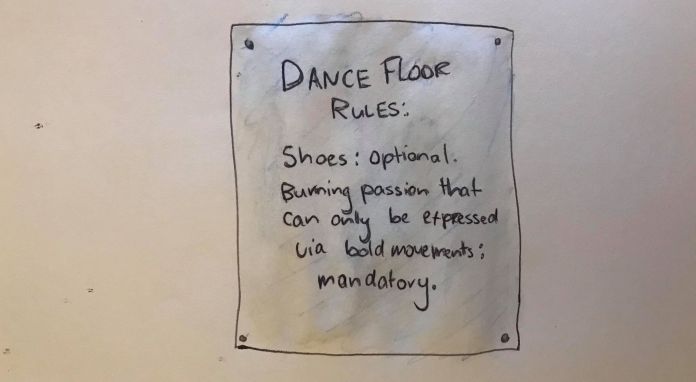 DANCE FLOOR
RULES:
Shoes: optional.
Burning passion that
can only be expressed
via bold movements:
mandatory.